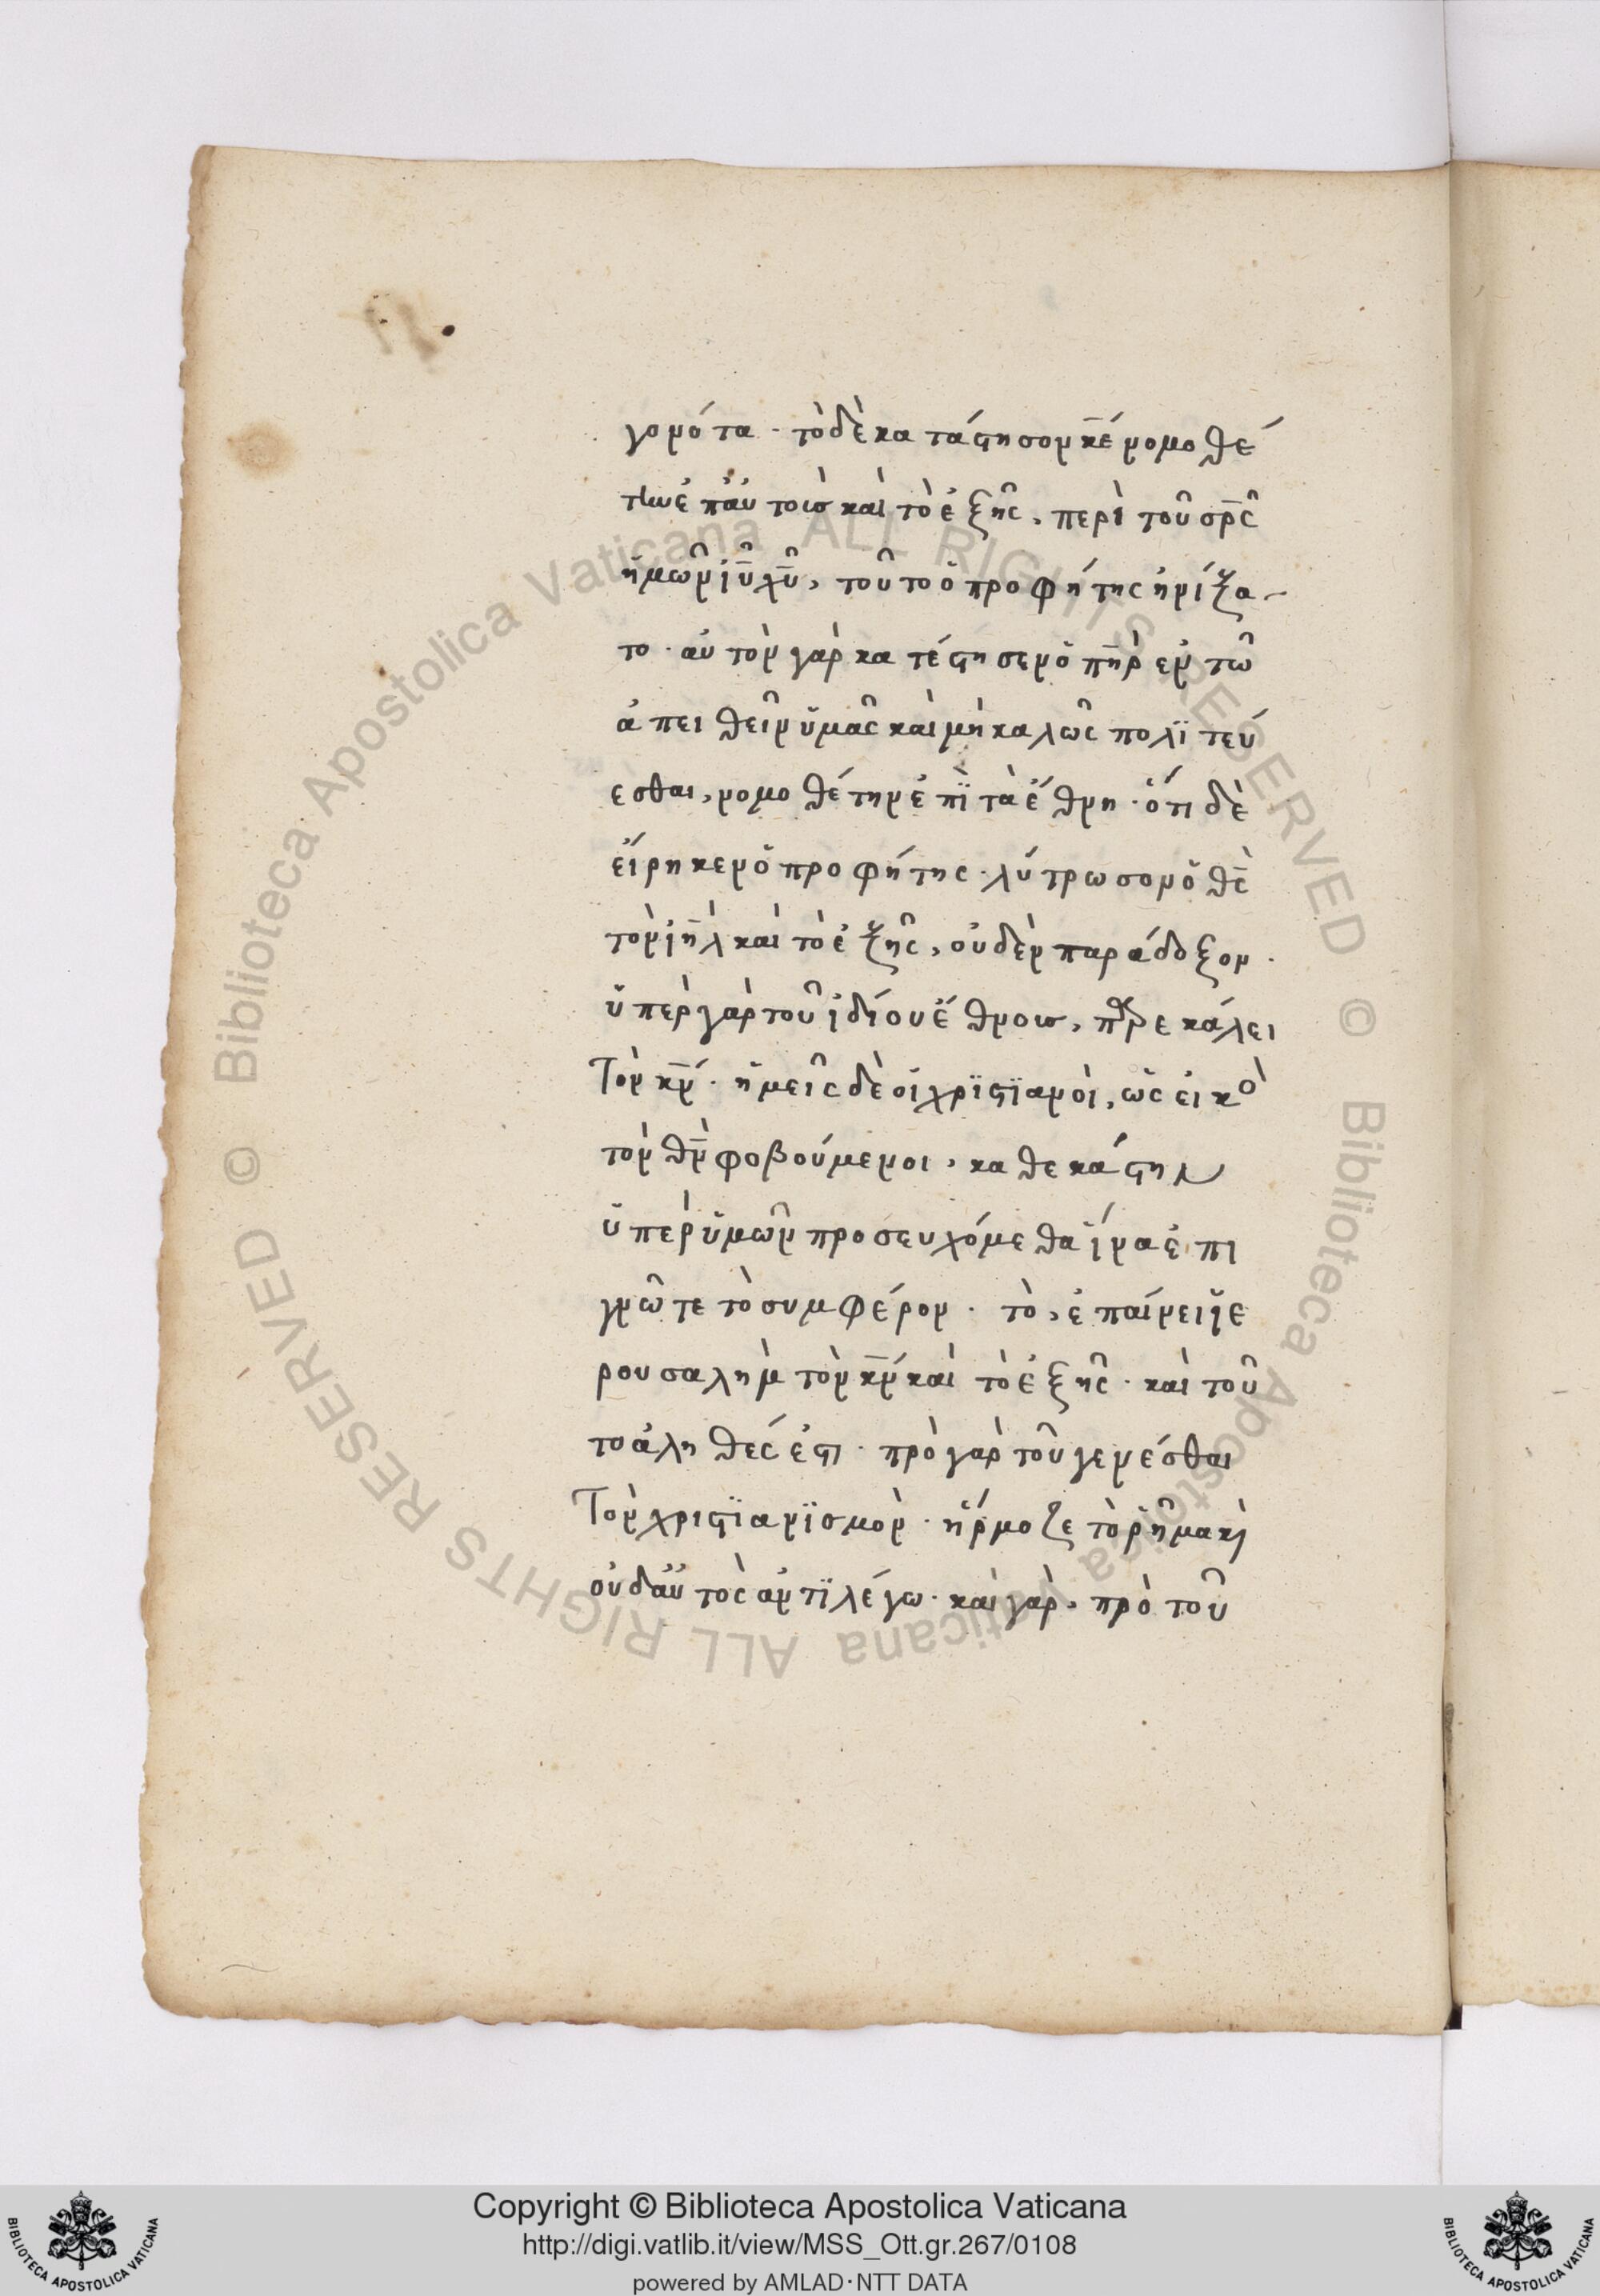 γονότα · τὸ δὲ κατάστησον κ̅ε νομοθέ
την ἐπ' αὐτοὺσ καὶ τὸ ἑξῆς, περὶ τοῦ σρ̅ς
ἡμῶν ἰ̅υ χ̅υ, τοῦτο ὁ προφήτης ἠνίξα-
το · αὐτὸν γὰρ κατέστησεν ὁ πη̅ρ ἐν τῶ
ἀπειθεῖν ὑμᾶς καὶ μὴ καλῶς πολϊτεύ
εσθαι, νομοθέτην ἐπῒ τὰ ἔθνη · ὅτι δὲ
εἴρηκεν ὁ προφήτης · λύτρωσον ὁ θ̅ς
τὸν ἰη̅λ καὶ τὸ ἑξῆς, οὐδὲν παράδοξον ·
ὑπὲρ γὰρ τοῦ ἰδίου ἔθνουσ, παρεκάλει
Τὸν κ̅ν · ἡμεῖς δὲ οἱ χρϊστϊανοὶ, ὡς εἰκὸ
τὸν θ̅ν φοβούμενοι, καθεκάστην
ὑπὲρ ὑμῶν προσευχόμεθα ἵνα ἐπι
γνῶτε τὸ συμφέρον · τὸ, ἐπαίνει ἱε
ρουσαλὴμ τὸν κ̅ν καὶ τὸ ἑξῆς · καὶ τοῦ
το ἀληθές ἐστι · πρὸ γὰρ τοῦ γενέσθαι
Τὸν χριστϊανϊσμὸν · ἥρμοζε τὸ ῥῆμα κὶ
οὐδ' αὐτὸς ἀντϊλέγω · καὶ γὰρ, πρὸ τοῦ
© Biblioteca Apostolica Vaticana ALL RIGHTS RESERVED
© Biblioteca Apostolica Vaticana ALL RIGHTS RESERVED
Copyright © Biblioteca Apostolica Vaticana
http://digi.vatlib.it/view/MSS_Ott.gr.267/0108
powered by AMLAD·NTT DATA
BIBLIOTECA APOSTOLICA VATICANA
BIBLIOTECA APOSTOLICA VATICANA